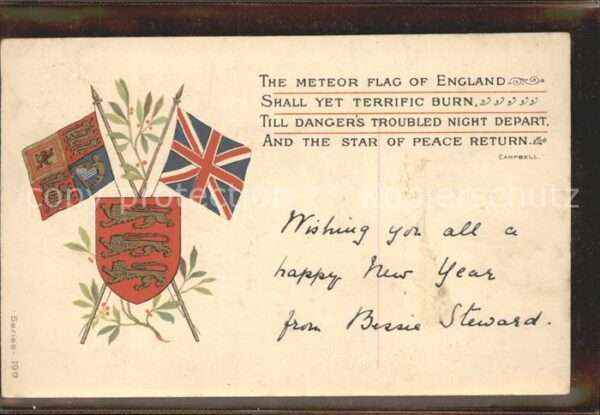 THE METEOR FLAG OF ENGLAND
SHALL YET TERRIFIC BURN,
TILL DANGER'S TROUBLED NIGHT DEPART,
AND THE STAR OF PEACE RETURN.
CAMPBELL.
Wishing you all a
happy New Year
from Bessie Steward.
Series-199
copy protection Kopierschutz